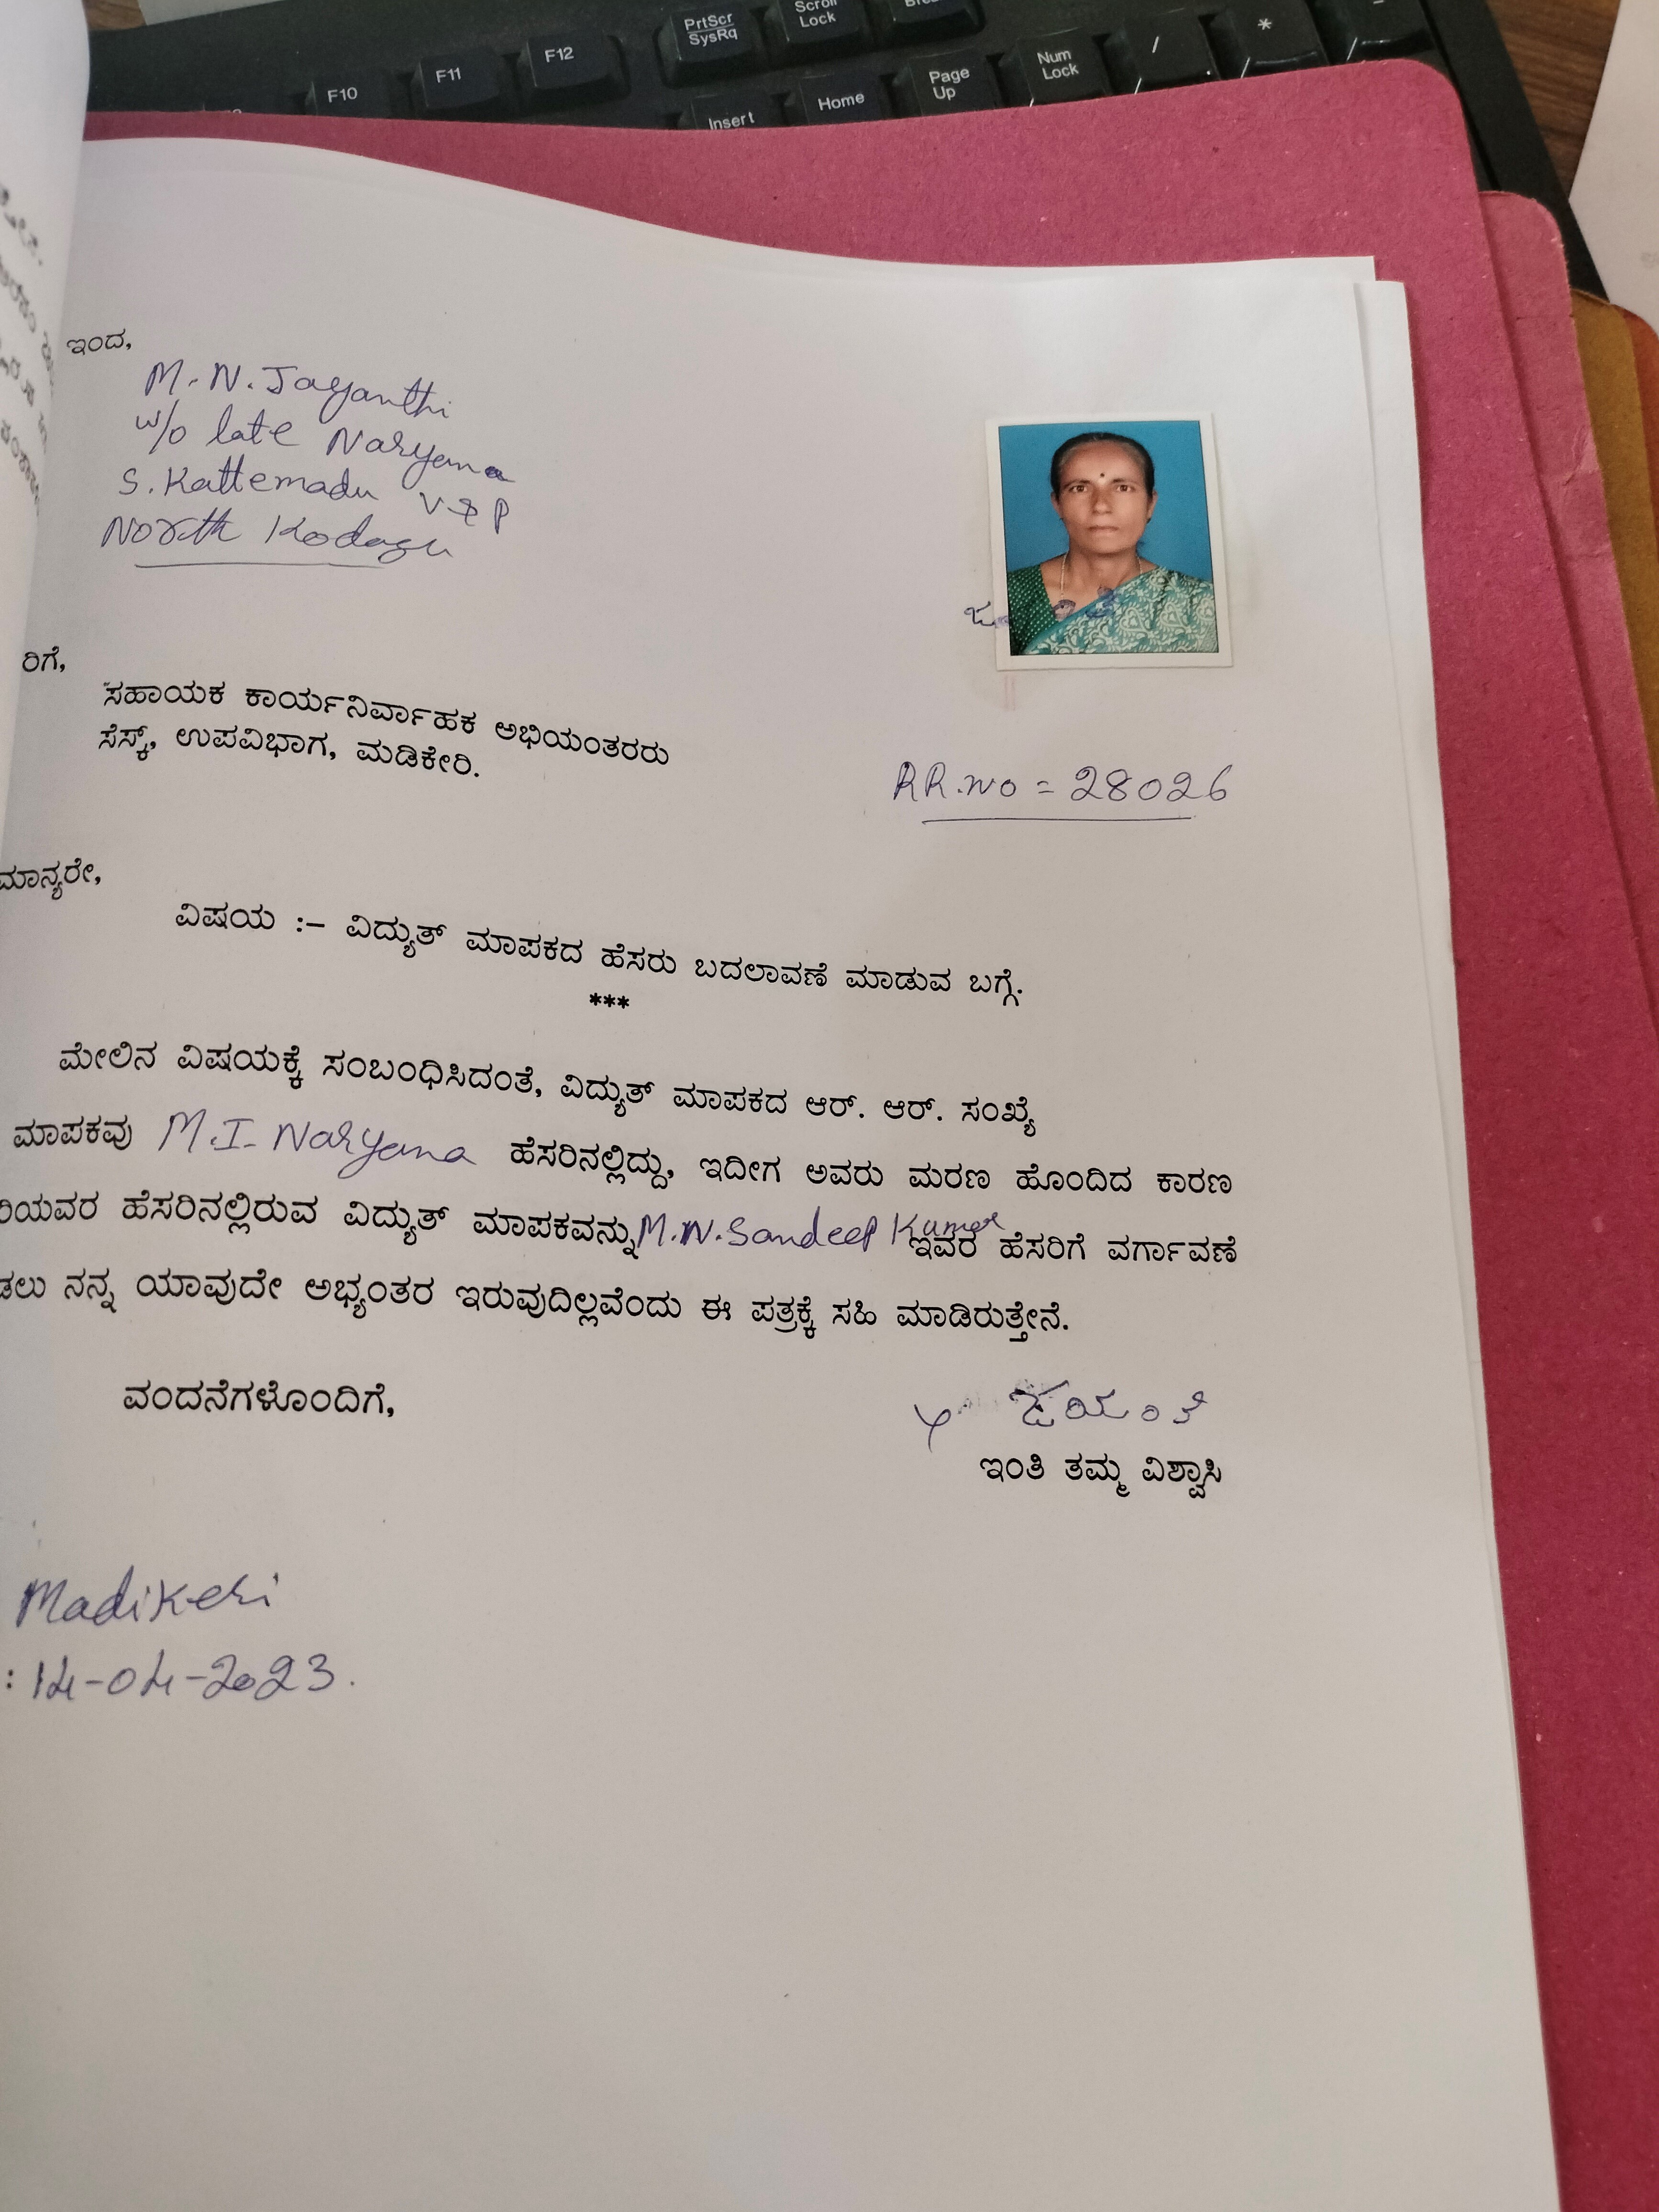 PrtScr
SysRq
Scroll
Lock
F10
F11
F12
Insert
Home
Page
Up
Num
Lock
/
*
ಇಂದ,
M.N.Jayanthi
w/o late Naryana
S.Kattemadu V&P
North Kodagu
ರಿಗೆ,
ಸಹಾಯಕ ಕಾರ್ಯನಿರ್ವಾಹಕ ಅಭಿಯಂತರರು
ಸೆಸ್ಕ್, ಉಪವಿಭಾಗ, ಮಡಿಕೇರಿ.
RR.no = 28026
ಮಾನ್ಯರೇ,
ವಿಷಯ :– ವಿದ್ಯುತ್ ಮಾಪಕದ ಹೆಸರು ಬದಲಾವಣೆ ಮಾಡುವ ಬಗ್ಗೆ.
***
ಮೇಲಿನ ವಿಷಯಕ್ಕೆ ಸಂಬಂಧಿಸಿದಂತೆ, ವಿದ್ಯುತ್ ಮಾಪಕದ ಆರ್. ಆರ್. ಸಂಖ್ಯೆ
ಮಾಪಕವು M.I- Naryana ಹೆಸರಿನಲ್ಲಿದ್ದು, ಇದೀಗ ಅವರು ಮರಣ ಹೊಂದಿದ ಕಾರಣ
ರಿಯವರ ಹೆಸರಿನಲ್ಲಿರುವ ವಿದ್ಯುತ್ ಮಾಪಕವನ್ನು M.N.Sandeep Kumar ಇವರ ಹೆಸರಿಗೆ ವರ್ಗಾವಣೆ
ಡಲು ನನ್ನ ಯಾವುದೇ ಅಭ್ಯಂತರ ಇರುವುದಿಲ್ಲವೆಂದು ಈ ಪತ್ರಕ್ಕೆ ಸಹಿ ಮಾಡಿರುತ್ತೇನೆ.
ವಂದನೆಗಳೊಂದಿಗೆ,
ಜಯಂತಿ
ಇಂತಿ ತಮ್ಮ ವಿಶ್ವಾಸಿ
Madikeri
: 14-04-2023.